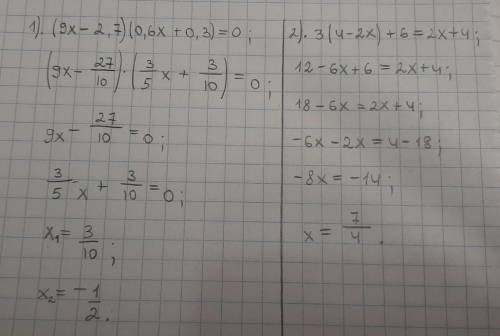 1). (9x - 2,7)(0,6x + 0,3) = 0;
(9x - 27/10) · (3/5 x + 3/10) = 0;
9x - 27/10 = 0;
3/5 x + 3/10 = 0;
x₁ = 3/10;
x₂ = -1/2.
2). 3(4 - 2x) + 6 = 2x + 4;
12 - 6x + 6 = 2x + 4;
18 - 6x = 2x + 4;
-6x - 2x = 4 - 18;
-8x = -14;
x = 7/4.